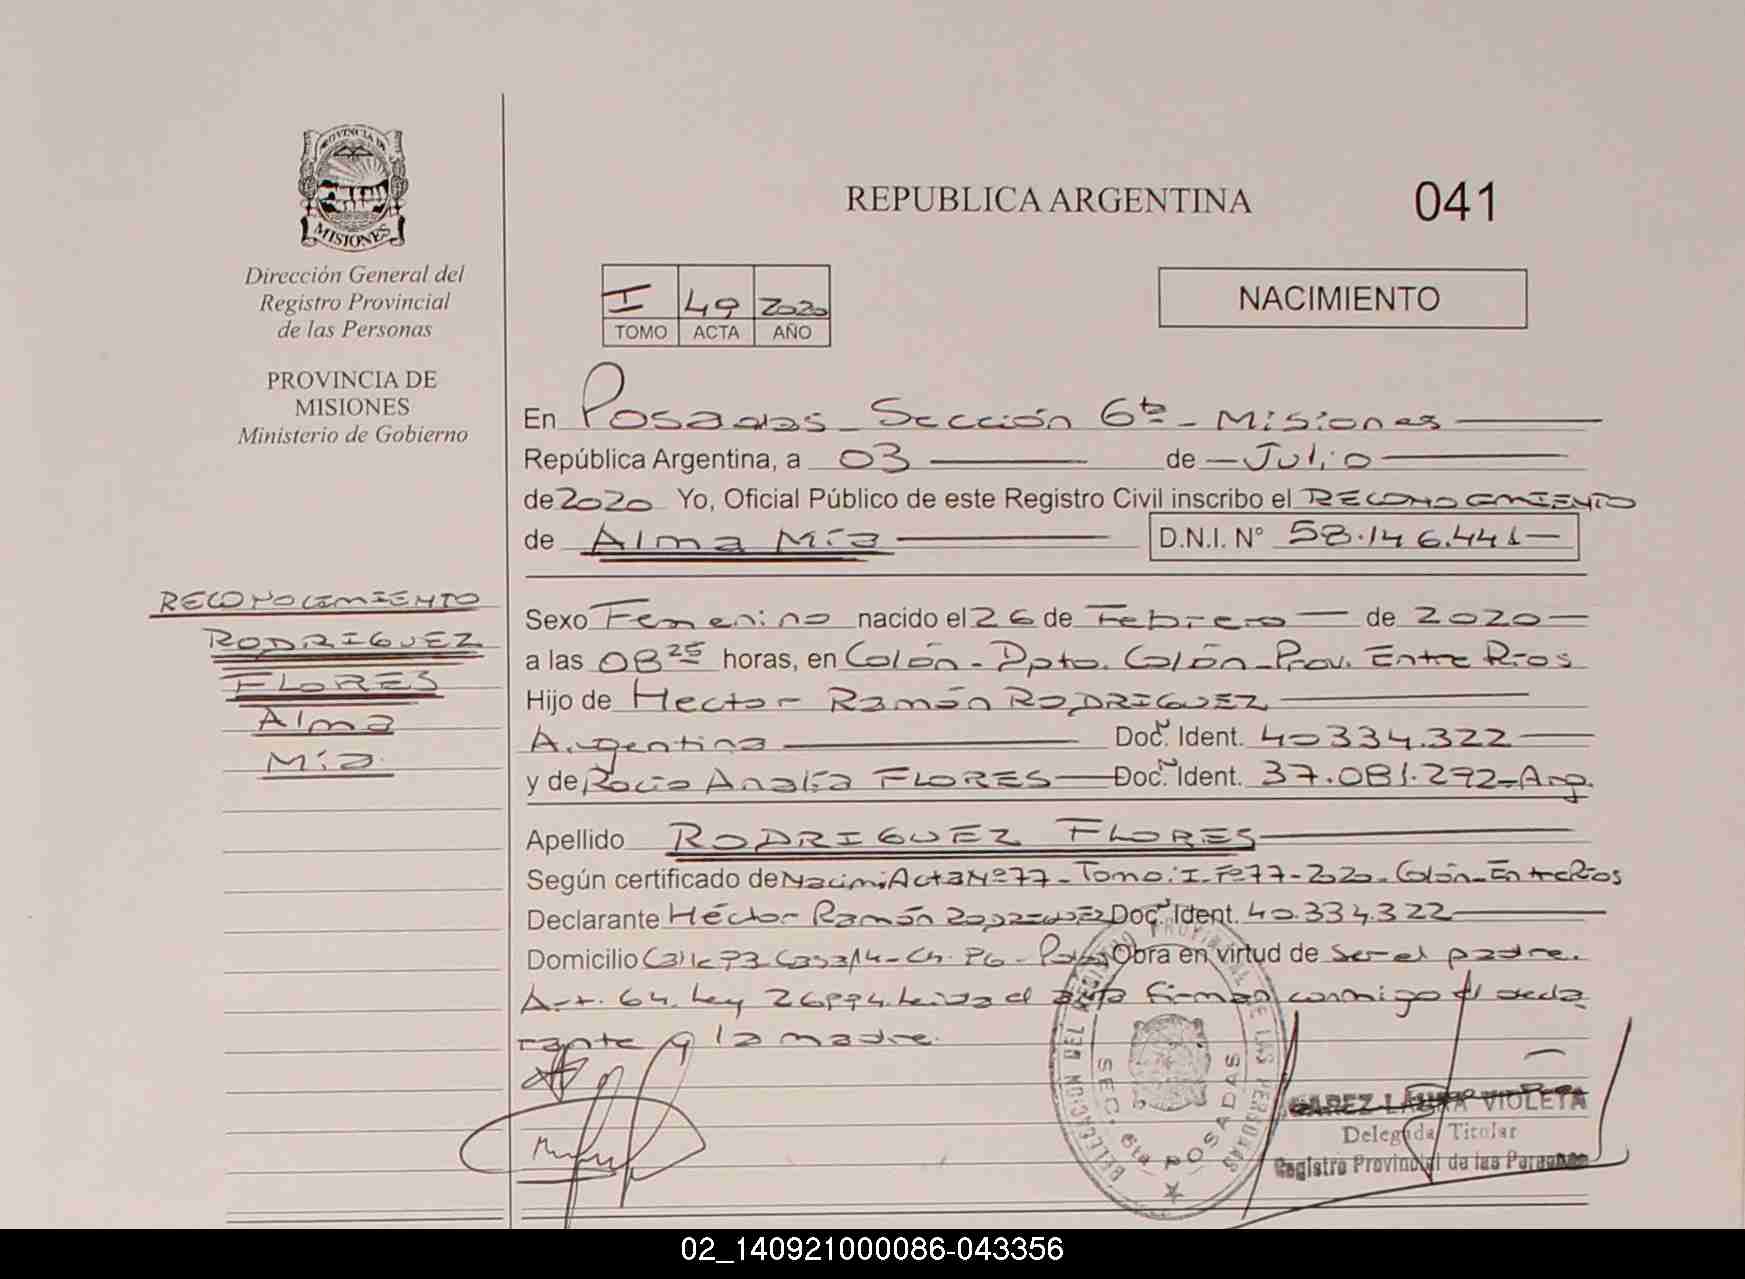 PROVINCIA DE
MISIONES
Dirección General del
Registro Provincial
de las Personas
PROVINCIA DE
MISIONES
Ministerio de Gobierno
RECONOCIMIENTO
RODRIGUEZ
FLORES
Alma
Mía
REPUBLICA ARGENTINA 041
I 49 2020
TOMO ACTA AÑO
NACIMIENTO
En Posadas - Sección 6ta - Misiones
República Argentina, a 03 de Julio
de 2020 Yo, Oficial Público de este Registro Civil inscribo el RECONOCIMIENTO
de Alma Mía D.N.I. N° 58.146.441
Sexo Femenino nacido el 26 de Febrero de 2020
a las 08 25 horas, en Colón - Dpto. Colón - Prov. Entre Rios
Hijo de Hector Ramón RODRIGUEZ
Argentina Doc. Ident. 40334.322
y de Rocio Analía FLORES Doc. Ident. 37.081.292 - Arg.
Apellido RODRIGUEZ FLORES
Según certificado de Nacim. Acta Nº 77 - Tomo: I - Fº 77 - 2020 - Colón - Entre Rios
Declarante Héctor Ramón RODRIGUEZ Doc. Ident. 40.334.322
Domicilio Calle Casa 14 - Ch. Obra en virtud de ser el padre.
Art. 64. Ley 26994. Leida el acta firman conmigo el decla
rante y la madre.
DELEGACION DEL REGISTRO PROVINCIAL DE LAS PERSONAS
SEC. 6ta POSADAS
LAURA VIOLETA
Delegada Titular
Registro Provincial de las Personas
02_140921000086-043356